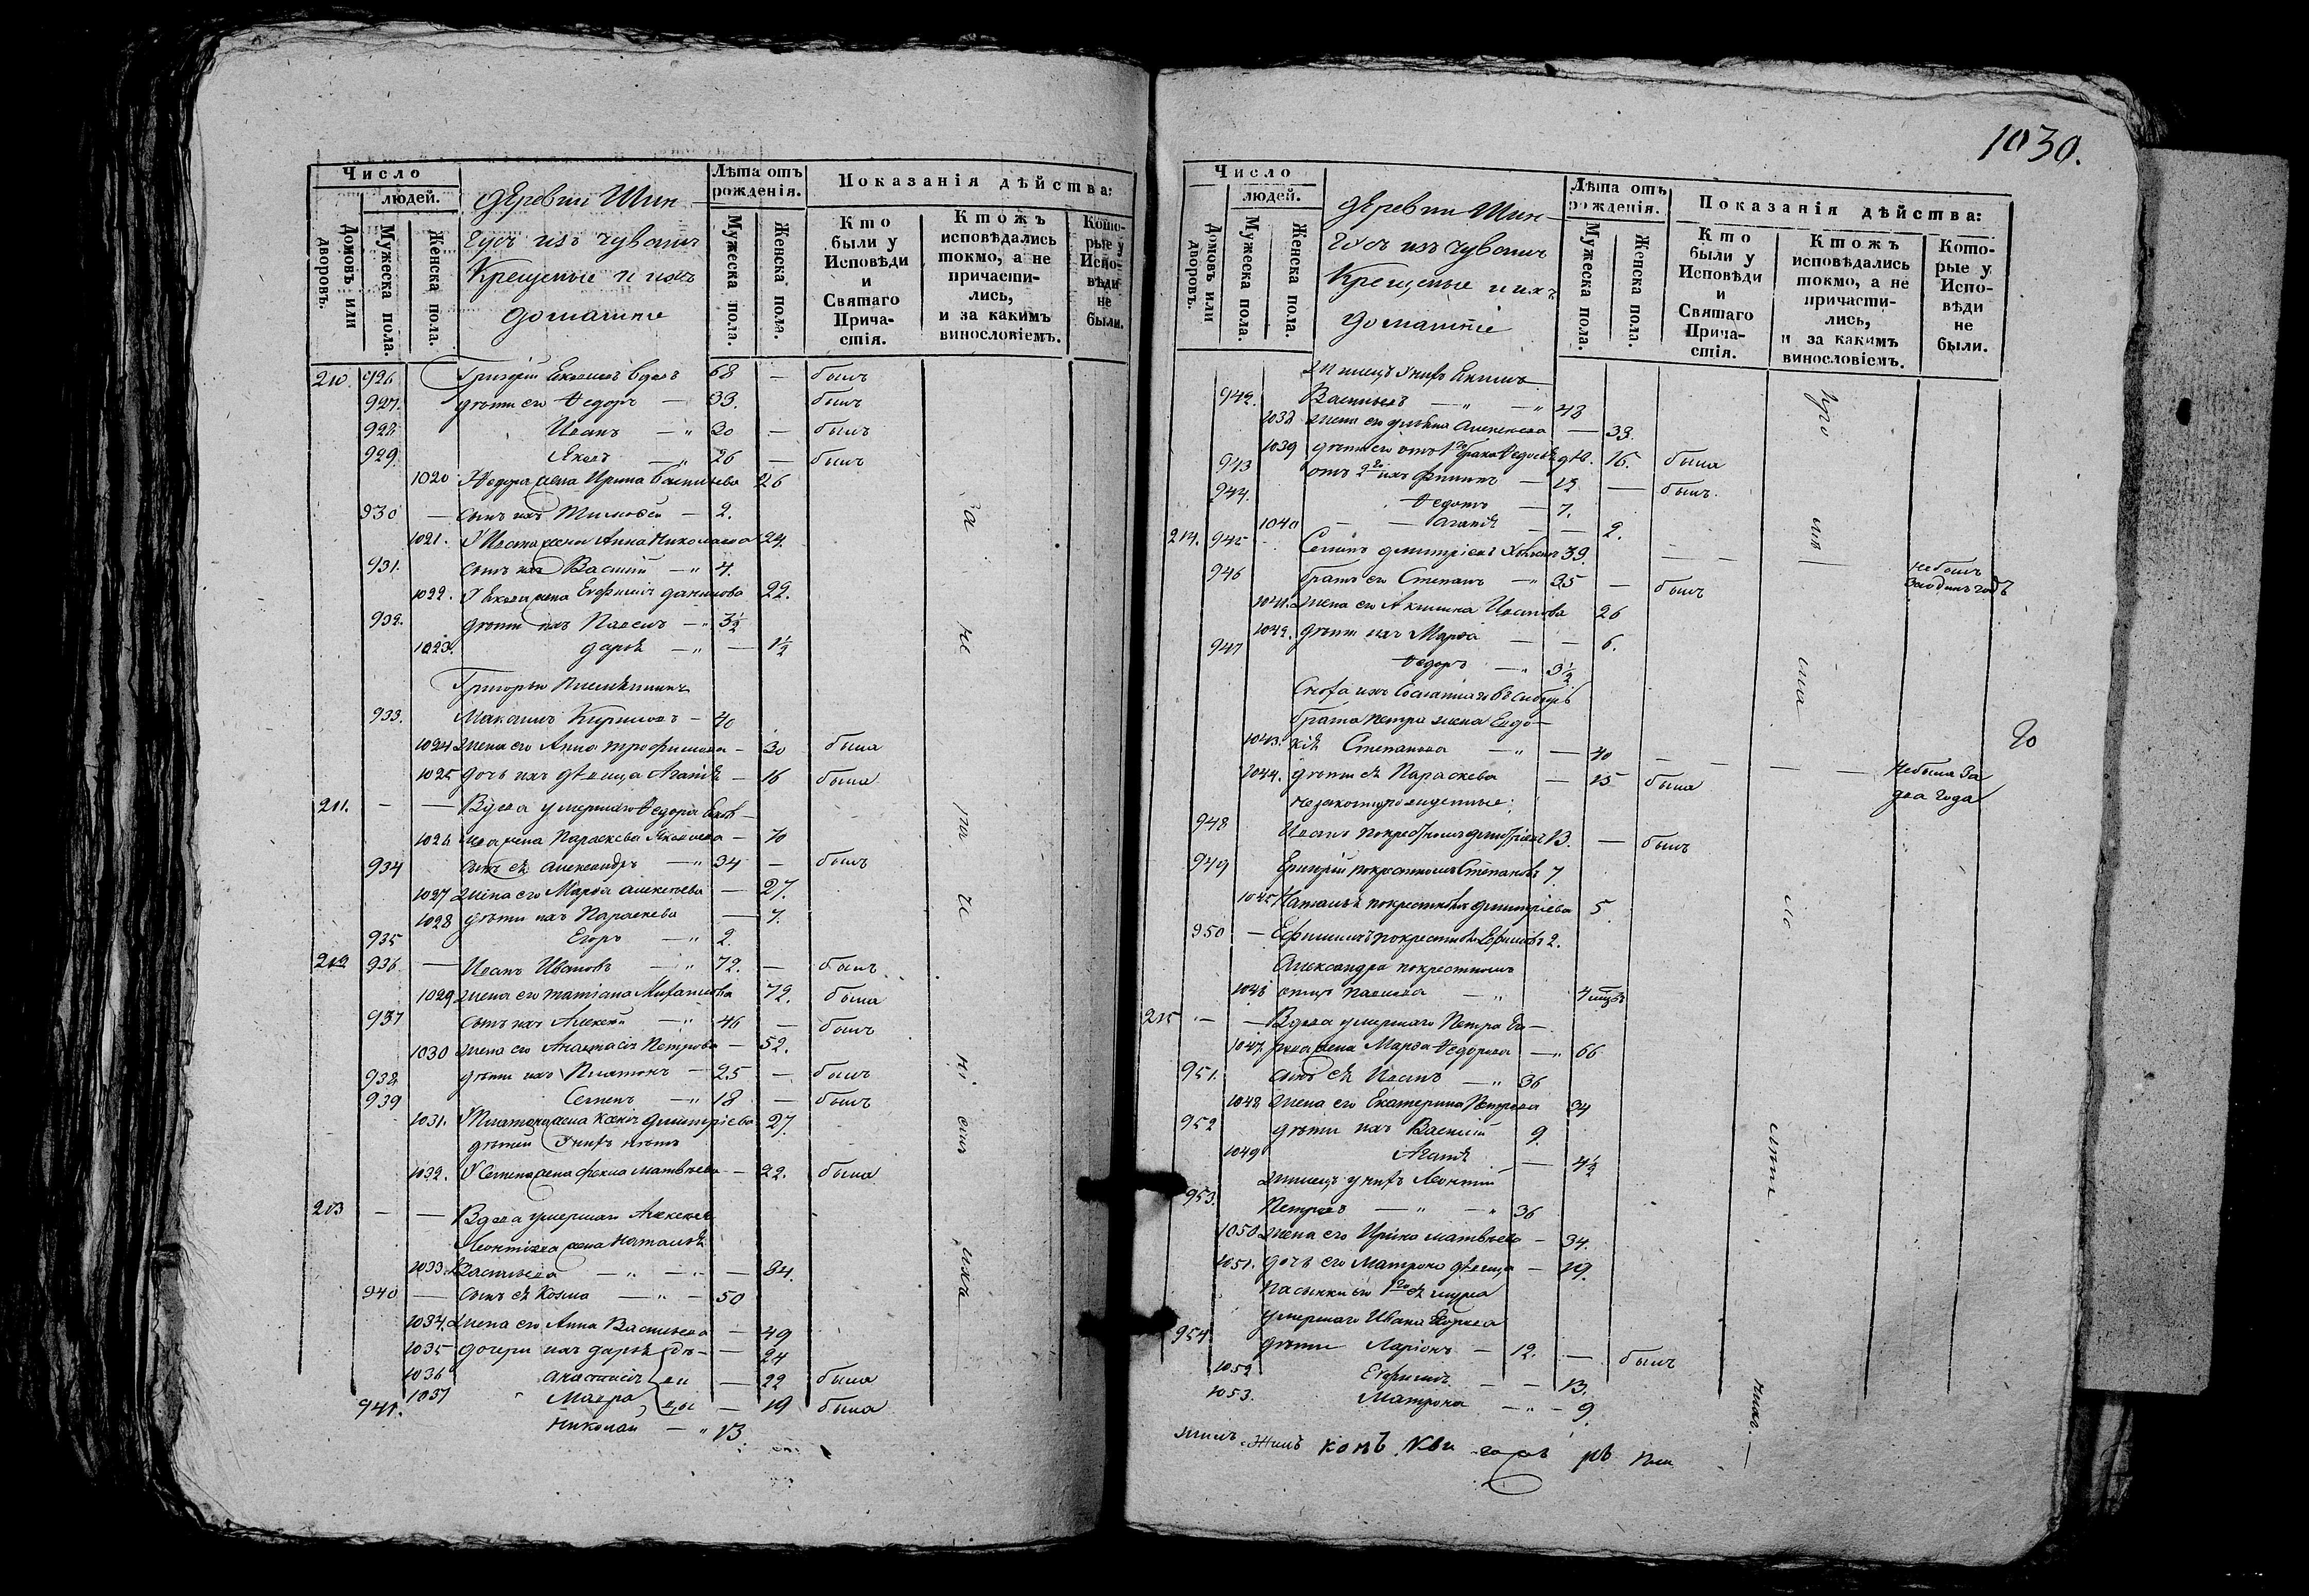 Число
людей.
Домовъ или дворовъ.
Мужеска пола.
Женска пола.
деревни Шин
гусъ изъ чувашъ
Крещеные и ихъ
домашніе
Лѣта отъ рожденія.
Мужеска пола.
Женска пола.
Показанія дѣйства:
Кто были у Исповѣди и Святаго Причастія.
Ктожъ исповѣдались токмо, а не причастились, и за какимъ винословіемъ.
Которые у Исповѣди не были.
210. 926. Григорій Яковлевъ вдовъ 68 — былъ
927. дѣти его Ѳедоръ — 33. былъ
928. Иванъ — 30 — былъ
929. Яковъ — 26 — былъ
1020 Ѳедора жена Ирина Васильева 26
930 — сынъ ихъ Тимоѳей — 2.
1021. У Ивана жена Анна Николаева 24.
931. сынъ ихъ Василій — 4.
1022. У Якова жена Евфимія Данилова 22.
932. дѣти ихъ Павелъ — 3½
1023. Дарья — — 1½
Григорья племянникъ
933. Максимъ Кириловъ — 40
1024 жена его Анна Трофимова — 30 была
1025 дочь ихъ дѣвица Агафія — 16 была
211. — — Вдова умершаго Ѳедора Яков—
1026 лева жена Параскева Яковлева — 70
934 сынъ ея Александръ — 34 — былъ
1027 жена его Марѳа Алексѣева — 27.
1028 дѣти ихъ Параскева — 7.
935 Егоръ — 2.
212 936 — Иванъ Ивановъ — 72. — былъ
1029 жена его Татіана Михайлова 72. была
937 сынъ ихъ Алексѣй — 46 — былъ
1030 жена его Анастасія Петрова — 52.
938 дѣти ихъ Платонъ — 25 — былъ
939 Семенъ — 18 — былъ
1031. У Платона жена Ксенія Дмитріева 27.
дѣтей у нихъ нѣтъ
1032. У Семена жена Фекла Матвѣева — 22. была
213 — — Вдова умершаго Алексѣя
Леонтіева жена Наталья
1033. Васильева — — 84.
940 — сынъ ея Козма — 50
1034. жена его Анна Васильева — 49
1035 дочери ихъ Дарья дѣ— — 24
1036 Анастасія ви — 22 была
1037 Мавра цы — 19 была
941. Николай — 13.
1030.
Число
людей.
Домовъ или дворовъ.
Мужеска пола.
Женска пола.
деревни Шин
гусъ изъ чувашъ
Крещеные и ихъ
домашніе
Лѣта отъ рожденія.
Мужеска пола.
Женска пола.
Показанія дѣйства:
Кто были у Исповѣди и Святаго Причастія.
Ктожъ исповѣдались токмо, а не причастились, и за какимъ винословіемъ.
Которые у Исповѣди не были.
942. Васильевъ — — 48
1038 жена его Алексѣева — 38.
1039 дѣти его отъ 1го брака 16. была
943 отъ 2го ихъ Филипъ — 12 — былъ.
944. Ѳедотъ — 7.
1040 — — Агафія — — 2.
214. 945 39. не былъ за одинъ годъ
946 братъ его Степанъ — 35 — былъ
1041. жена его Акилина Иванова 26
1042. дѣти ихъ Марѳа — — 6.
947 Ѳедоръ — 3½
Сноха ихъ сосланнаго въ Сибирь
брата Петра жена Евдо—
1043. кія Степанова — — 40 — — — — Не была за
1044. дѣти ея Параскева — 15 была два года
незаконнорожденные:
948 Иванъ 13. — былъ
949 Григорій по крестномъ Степановъ 7
1045 Наталья по крестномъ Дмитріева 5
950 — Ефимъ 2.
Александра по крестномъ
1046 отцѣ Павлова — 4 мцвъ
215 — — Вдова умершаго Петра Его—
1047. рова жена Марѳа Ѳедорова — 66
951. сынъ ея Иванъ — 36
1048 жена его Екатерина Петрова 34
952 дѣти ихъ Василій 9.
1049 Агафія — 4½
Жилецъ у нихъ Леонтій
953. Петровъ — — 36
1050 жена его Ирина Матвѣева — 34.
1051. дочь его Матрона дѣвица — 19.
Пасынки его 1го ея мужа
умершаго Ивана Егорова
954 дѣти Ларіонъ — 12. — былъ
1052 Евфимія — — 13.
1053. Матрона — — 9.